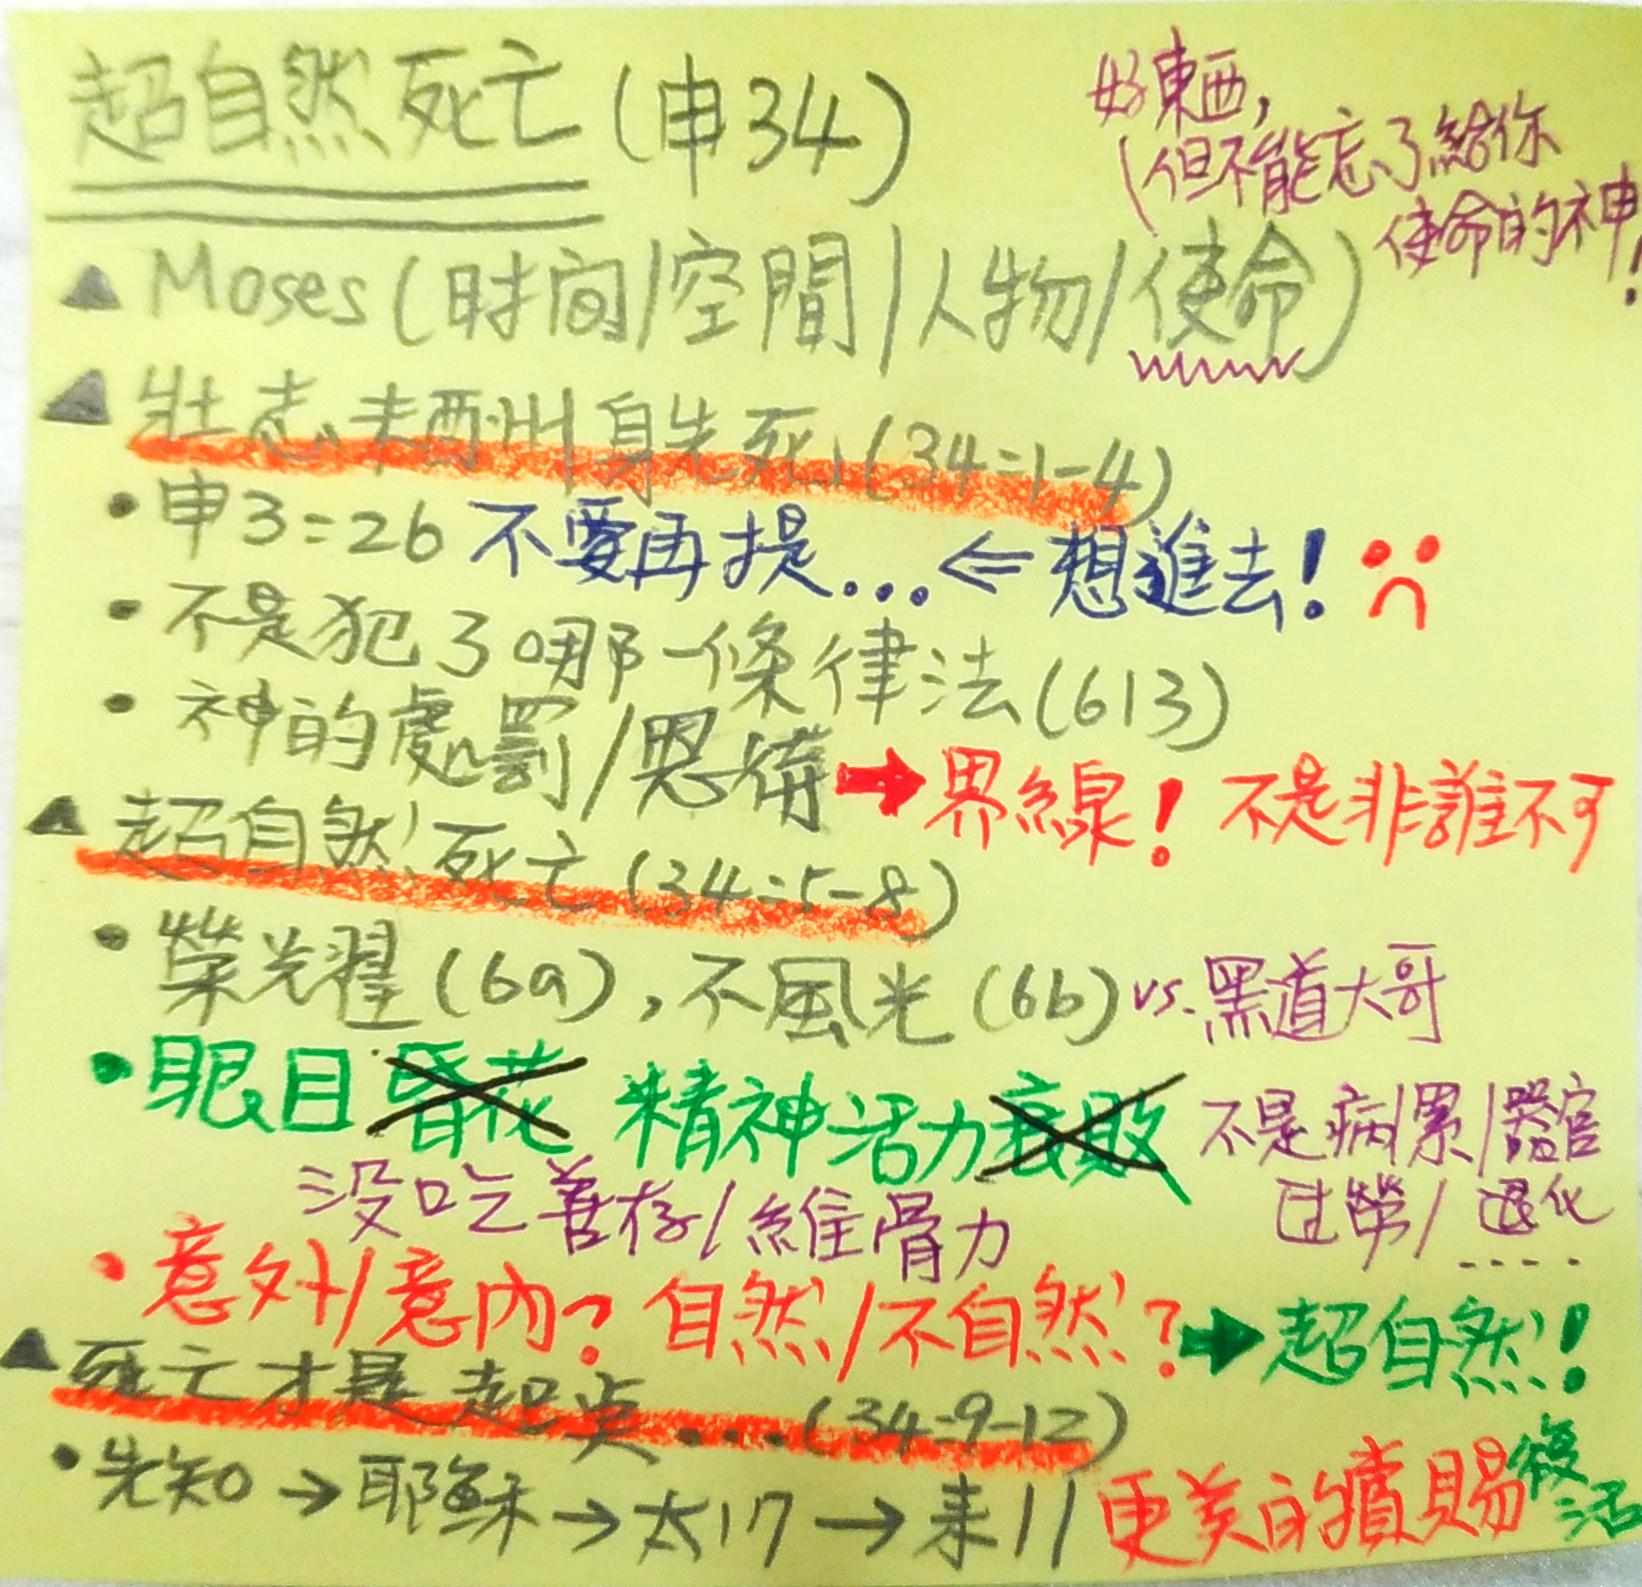 超自然死亡(申34)
好東西,
(但不能忘了給你
使命的神!
▲ Moses(时间/空間/人物/使命)
▲ 壯志未酬身先死(34:1-4)
• 申3:26 不要再提... ⇐ 想進去!
• 不是犯了哪一條律法(613)
• 神的處罰/恩典 → 界線! 不是非誰不可
▲ 超自然死亡(34:5-8)
• 榮光耀(6a), 不風光(6b) vs. 黑道大哥
• 眼目昏花 精神活力衰敗 不是病/累/器官
过勞/退化
....
没吃善存/維骨力
• 意外/意內? 自然/不自然? → 超自然!
▲ 死亡才是起点....(34:9-12)
• 先知 → 耶穌 → 太17 → 来11 更美的賞賜 復活